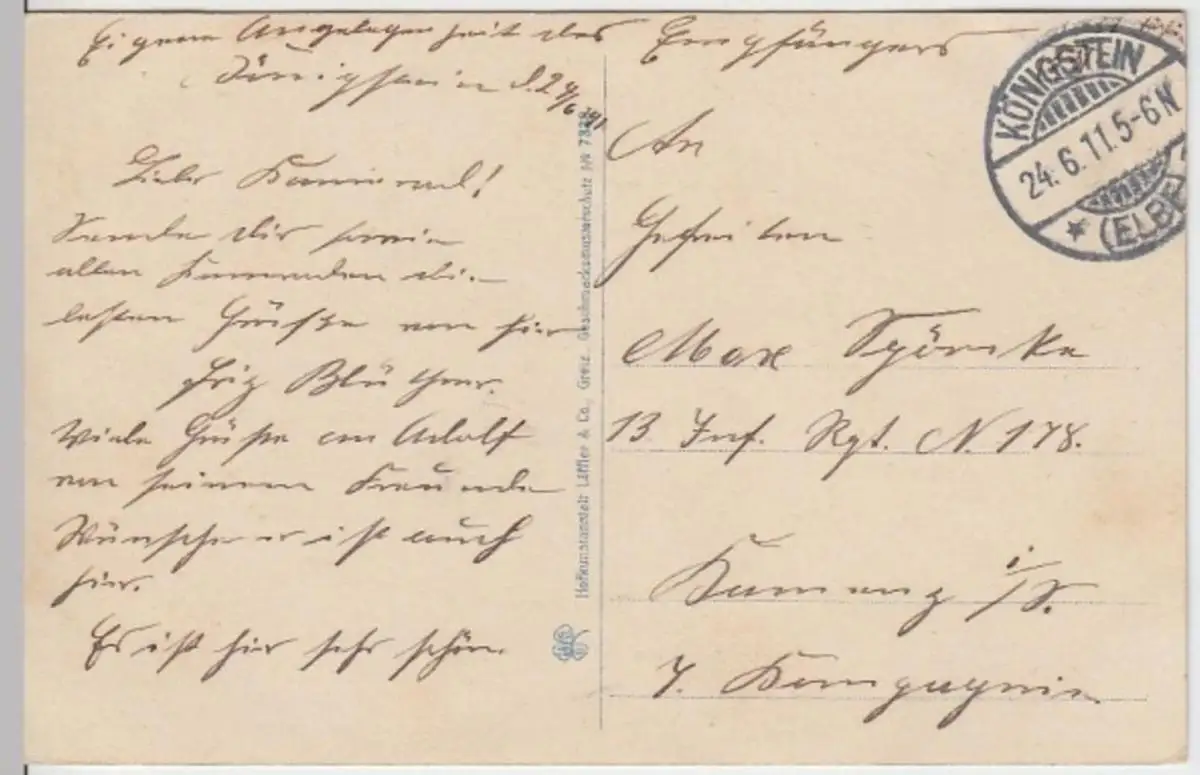 Eigene Angelegenheit des Empfängers
Königstein d. 24/6 1911
Lieber Kamerad!
Sende dir sowie
allen Kameraden die
besten Grüße von hier
Friz Blüthner.
Viele Grüße an Adolf
von seinem Freunde
Wünsche er ist auch
hier.
Es ist hier sehr schön
Hofkunstanstalt Löffler & Co., Greiz. Geschmacksmusterschutz No 7328
An
Gefreiten
Max Spörcke
13 Inf. Rgt. N. 178.
Kamenz i/S.
7. Kompagnie
KÖNIGSTEIN
24.6.11.5-6N
* (ELBE)